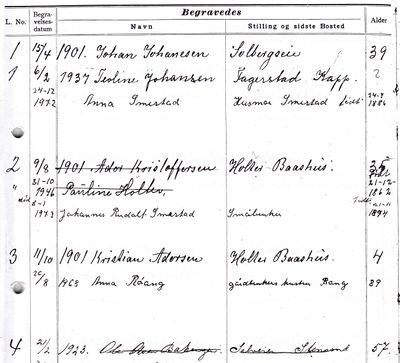 Begravedes
L. No. Begravelsesdatum Navn Stilling og sidste Bosted Alder
1 15/4 1901. Johan Johanesen Solbergseie 39
1 6/2 1937 Johansen Fagerstad Kapp. ?
24-12 1972 Anna Smestad Husmor Smestad født 24-9 1884
2 9/8 1901 Ador Kristoffersen Holles Baashus. 35
" 31-10 1946 Pauline Holtet, født 21-12- 1862
død 8-1 1973 Johannes Smestad Småbruker 21-11 1894
3 11/10 1901 Kristian Adorsen Holles Baashus. 4
20/8 1963 Anna Råang gårdbrukers Bang 89
4 21/2 1923. Ole 57.